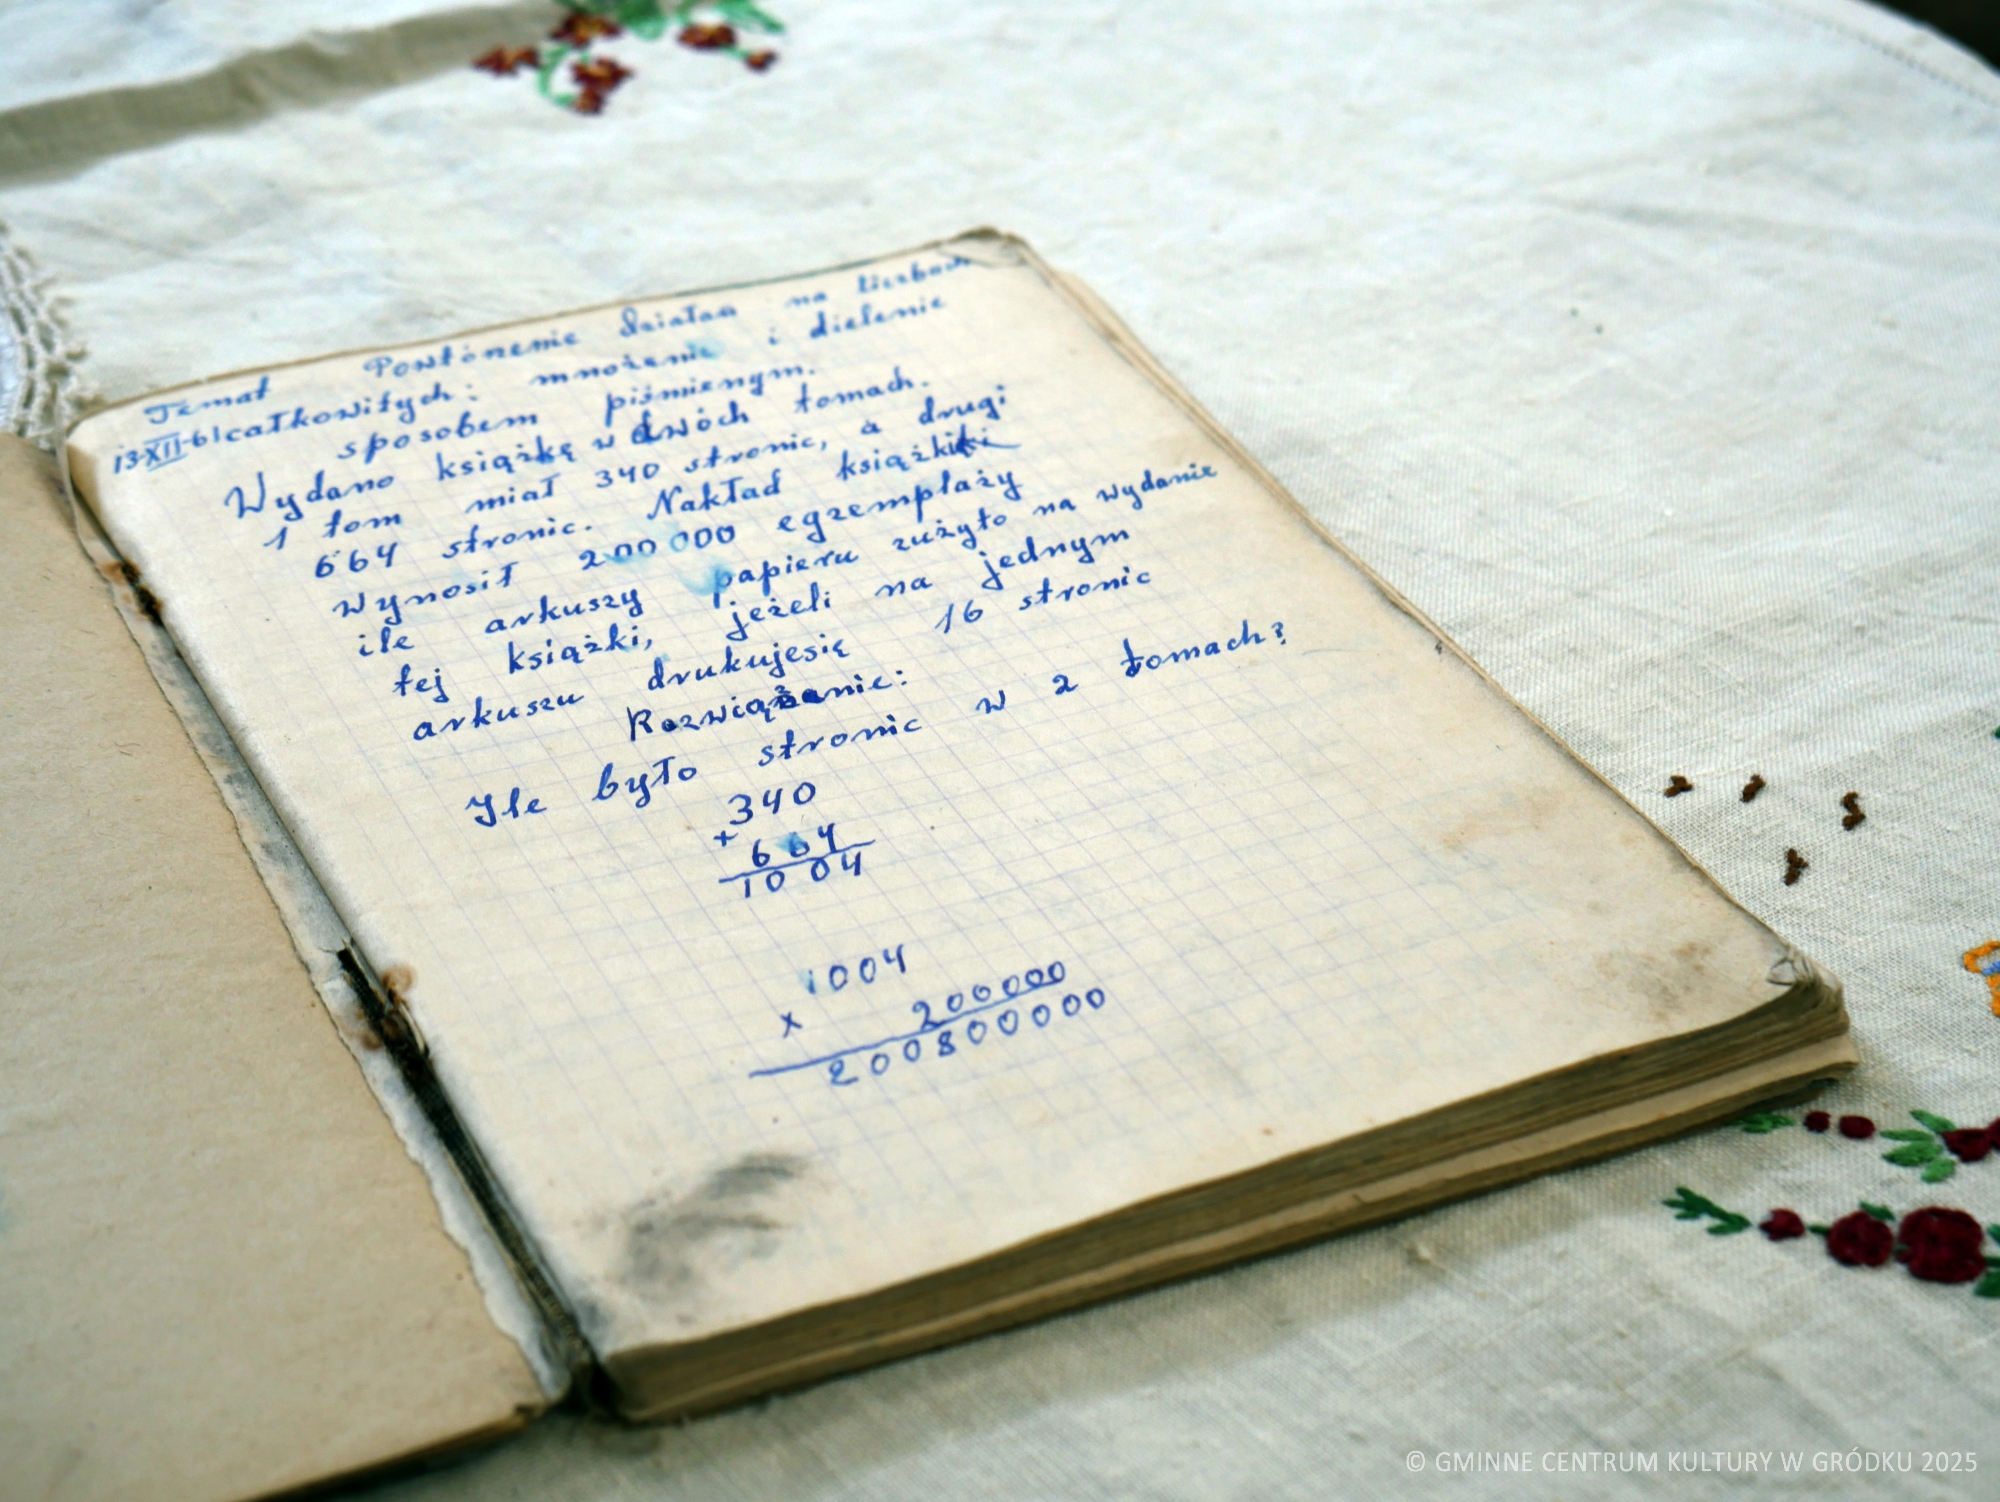 Temat Powtórzenie działań na liczbach
13-XII-61 całkowitych: mnożenie i dielenie
sposobem piśmienym.
Wydano książkę w dwóch tomach.
1 tom miał 340 stronic, a drugi
664 stronic. Nakład książki
wynosił 200 000 egzemplaży
ile arkuszy papieru zużyto na wydanie
tej książki, jeżeli na jednym
arkuszu drukujesię 16 stronic
Rozwiązanie:
Ile było stronic w 2 tomach?
340
+
664
1004
1004
x 200000
200800000
© GMINNE CENTRUM KULTURY W GRÓDKU 2025